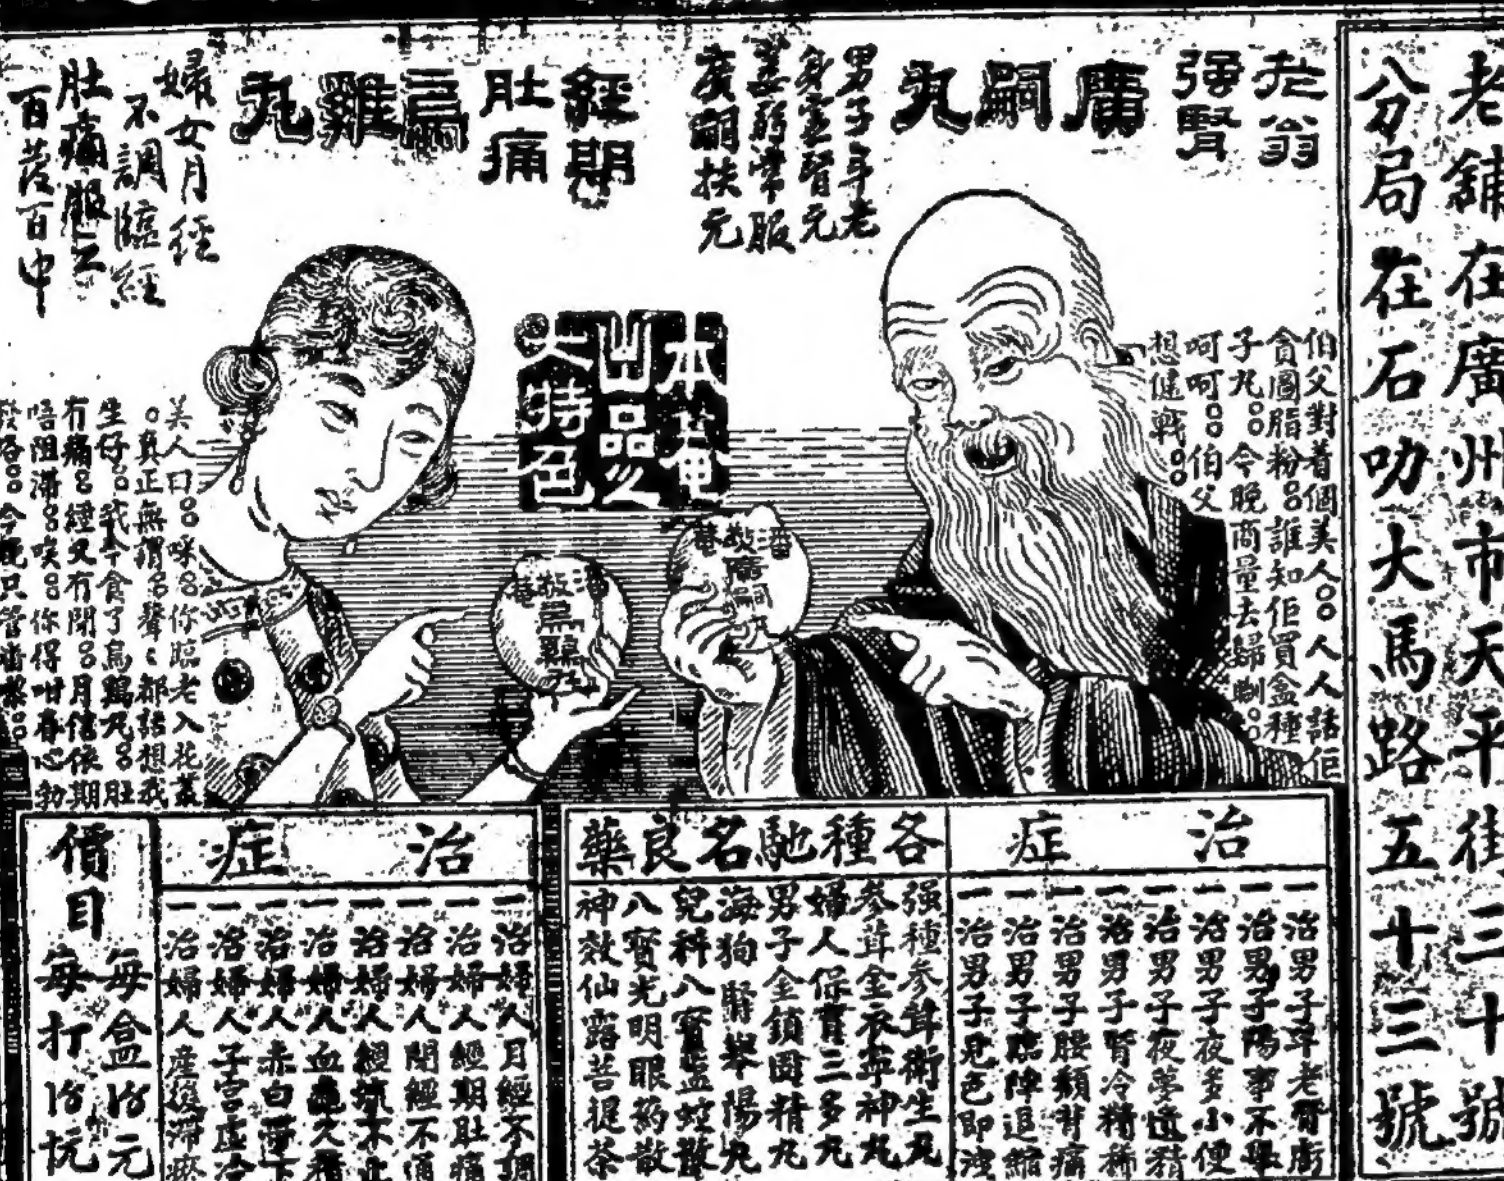 老舖在廣州市天平街三十號
分局在石叻大馬路五十三號
老翁
强腎
廣嗣丸
男子年老
身虛腎元
姜弱常服
廣嗣扶元
經期
肚痛
烏雞丸
婦女月經
不調臨經
肚痛服之
百發百中
本菴
出品之
大特色
伯父對着個美人○○人人話佢
貪圖脂粉○○誰知佢買盒種
子丸○○今晚商量去歸喇○○
呵呵○○伯父
想健戰○○
潘
敬
菴
廣嗣丸
潘
敬
菴
烏雞丸
美人曰○○咪○○你臨老入花叢
○真正無謂○○聲聲都話想我
生仔○○我今食了烏鷄丸○○肚
有痛○○經又有閉○○月信依期
唔阻滯○○唉○○你得咁春心勃
發咯○○今晚只管
治症
一治男子年老腎虧
一治男子陽事不舉
一治男子夜多小便
一治男子夜夢遺精
一治男子腎冷精稀
一治男子腰頹背痛
一治男子臨陣退縮
一治男子見色即洩
各種馳名良藥
强種參茸衛生丸
參茸金衣寧神丸
婦人保育三多丸
男子金鎖固精丸
海狗腎舉陽丸
兒科八寶盬蛇散
八寳光明眼葯散
神效仙露菩提茶
治症
一治婦人月經不調
一治婦人經期肚痛
一治婦人閉經不通
一治婦人經流不止
一治婦人血虧久積
一治婦人赤白帶下
一治婦人子宮虛冷
一治婦人產後滯瘀
價目
每盒
元
每打